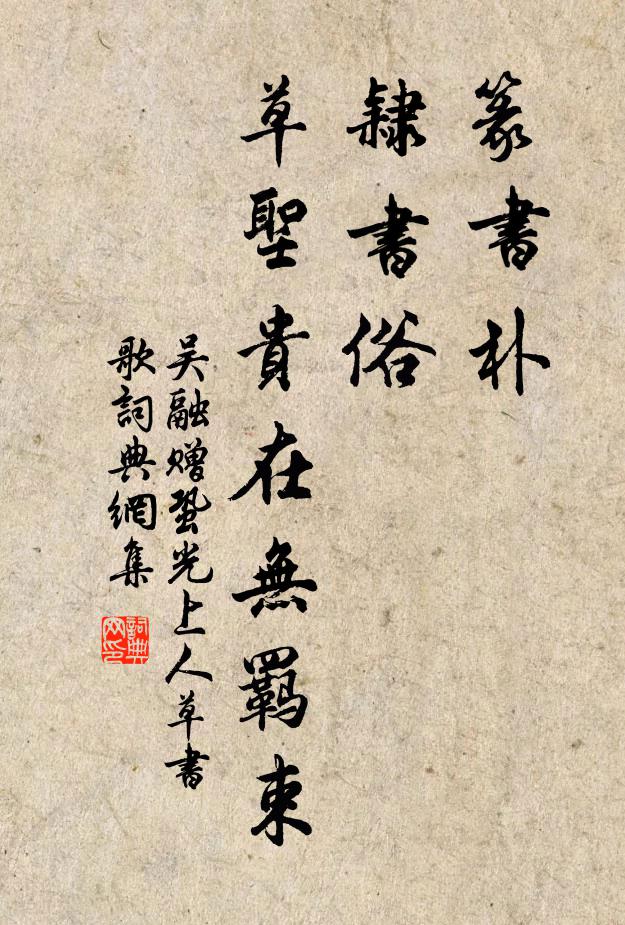 篆書朴
隸書俗
草聖貴在無羈束
吴融赠蛩光上人草書
歌詞典網集
詞典
网印